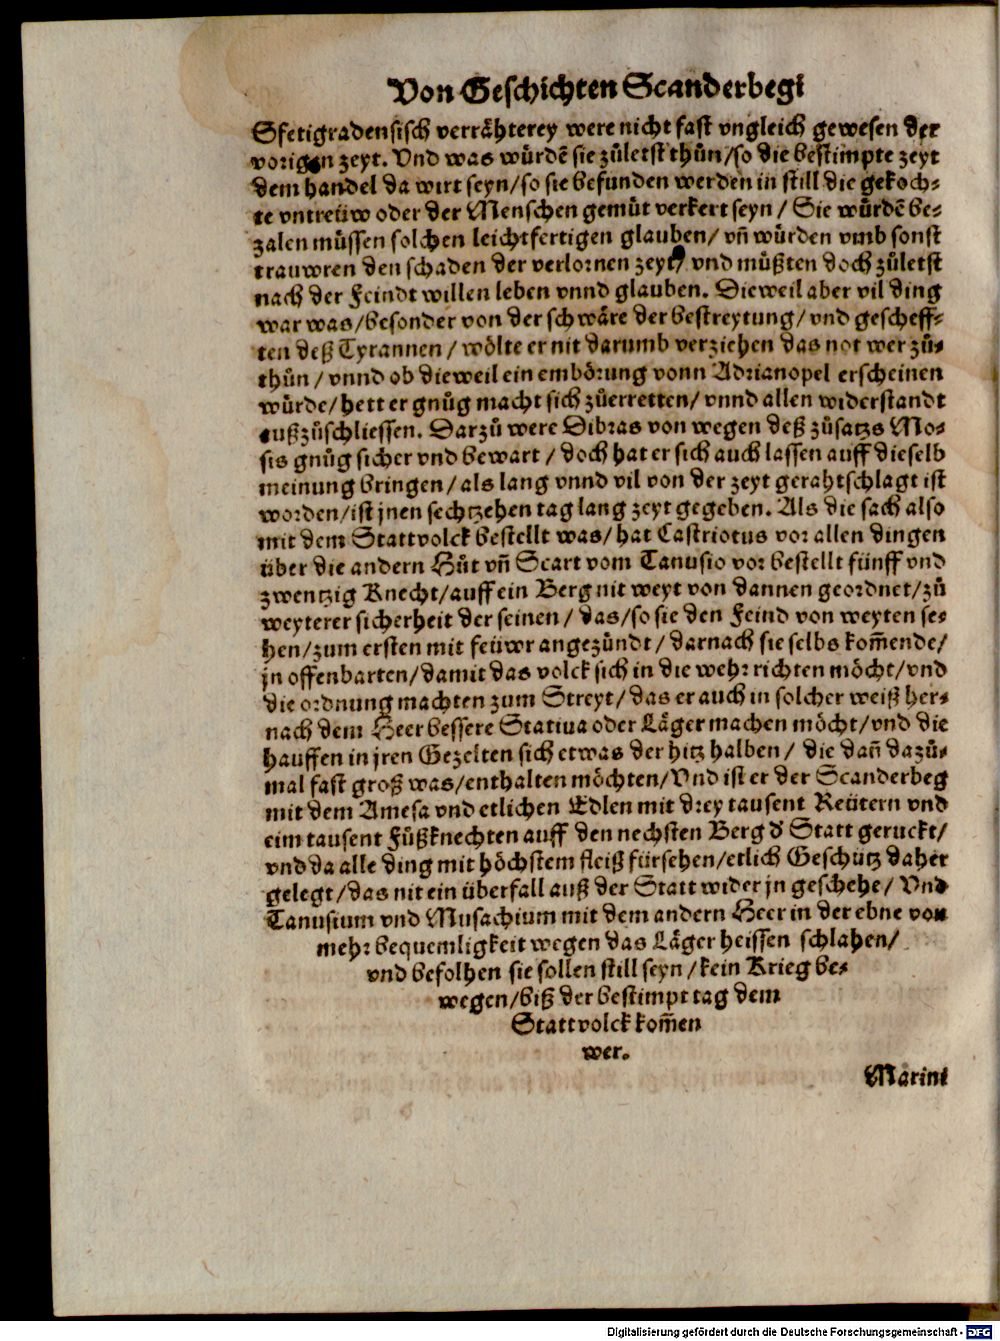 Von Geschichten Scanderbegi
Sfetigradensisch verrähterey were nicht fast vngleich gewesen der
vorigen zeyt. Vnd was würdẽ sie zůletst thůn/so die bestimpte zeyt
dem handel da wirt seyn/so sie befunden werden in still die gekoch⸗
te vntreüw oder der Menschen gemüt verkert seyn / Sie würdẽ be⸗
zalen müssen solchen leichtfertigen glauben/ vñ würden vmb sonst
trauwren den schaden der verlornen zeyt/ vnd müßten doch zůletst
nach der Feindt willen leben vnnd glauben. Dieweil aber vil ding
war was/besonder von der schwäre der bestreytung/ vnd gescheff⸗
ten deß Tyrannen / wölte er nit darumb verziehen das not wer zů⸗
thůn / vnnd ob dieweil ein embörung vonn Adrianopel erscheinen
würde/hett er gnůg macht sich zůerretten/ vnnd allen widerstandt
außzůschliessen. Darzů were Dibras von wegen deß zůsatzs Mo⸗
sis gnůg sicher vnd bewart / doch hat er sich auch lassen auff dieselb
meinung bringen/als lang vnnd vil von der zeyt gerahtschlagt ist
worden/ist jnen sechtzehen tag lang zeyt gegeben. Als die sach also
mit dem Stattvolck bestellt was/ hat Castriotus vor allen dingen
über die andern Hůt vñ Scart vom Tanusio vor bestellt fünff vnd
zwentzig Knecht/auff ein Berg nit weyt von dannen geordnet/zů
weyterer sicherheit der seinen / das/so sie den Feind von weyten se⸗
hen/zum ersten mit feüwr angezündt/darnach sie selbs kom̃ende/
jn offenbarten/damit das volck sich in die wehr richten möcht/vnd
die ordnung machten zum Streyt/das er auch in solcher weiß her⸗
nach dem Heer bessere Statiua oder Läger machen möcht/vnd die
hauffen in jren Gezelten sich etwas der hitz halben / die dañ dazů⸗
mal fast groß was/enthalten möchten/Vnd ist er der Scanderbeg
mit dem Amesa vnd etlichen Edlen mit drey tausent Reütern vnd
eim tausent Fůßknechten auff den nechsten Berg d' Statt geruckt/
vnd da alle ding mit höchstem fleiß fürsehen/etlich Geschütz daher
gelegt/das nit ein überfall auß der Statt wider jn geschehe/ Vnd
Tanusium vnd Musachium mit dem andern Heer in der ebne von
mehr bequemligkeit wegen das Läger heissen schlahen/
vnd befolhen sie sollen still seyn/kein Krieg be⸗
wegen/biß der bestimpt tag dem
Stattvolck kom̃en
wer.
Marini
Digitalisierung gefördert durch die Deutsche Forschungsgemeinschaft - DFG